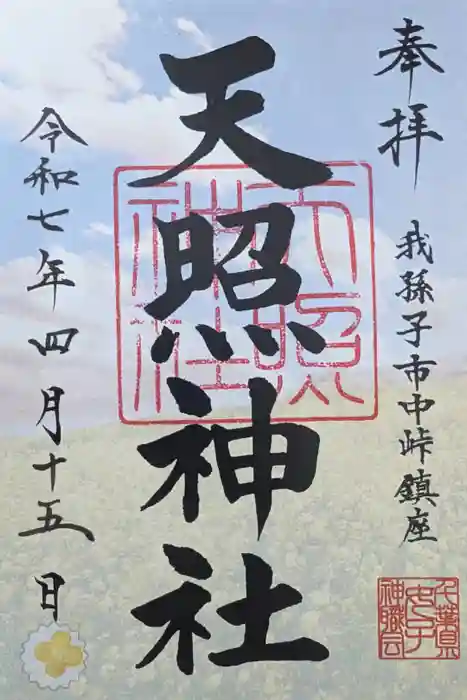 奉拝
我孫子市中峠鎮座
天照神社
天照
神社
千葉県
女子
神職会
令和七年四月十五日